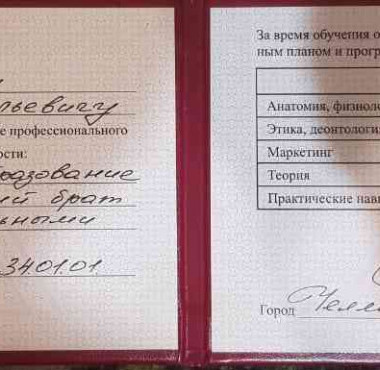 льевичу
е профессионального
ости:
разование
ий брат
ьными
34.01.01
За время обучения о
ным планом и прогр
Анатомия, физиоло
Этика, деонтологи
Маркетинг
Теория
Практические нав
Город Челя